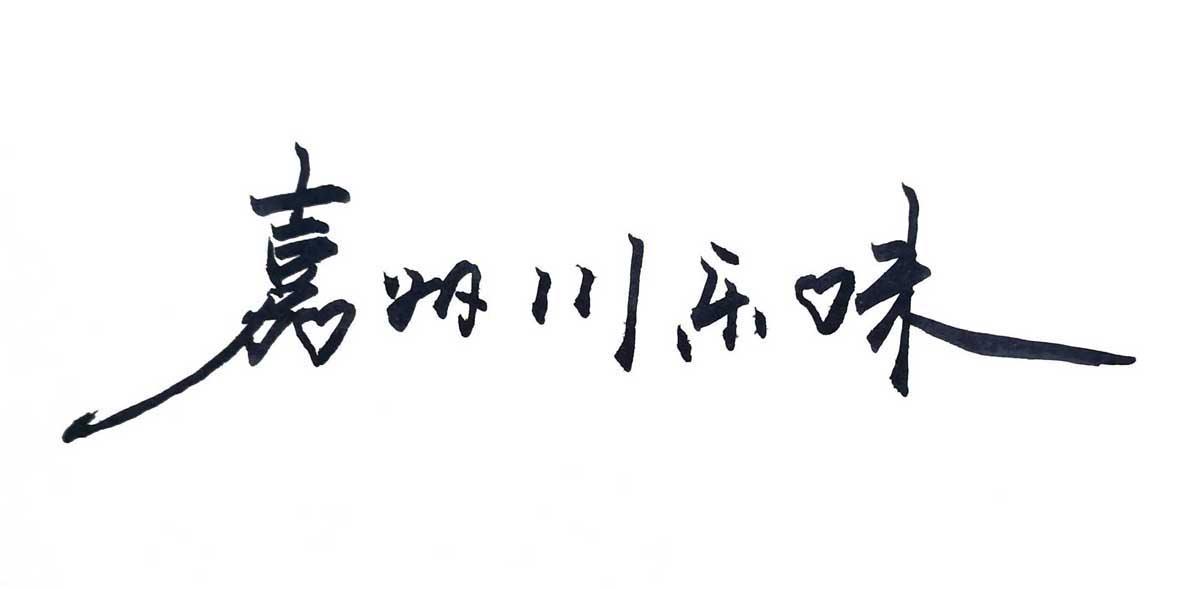 嘉州川乐味